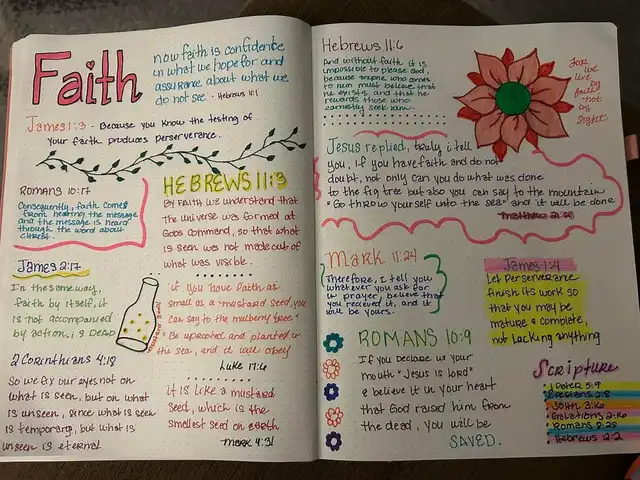 Faith
now faith is confidence
in what we hope for and
assurance about what we
do not see - Hebrews 11:1
James 1:3 - Because you know the testing of
your faith produces perserverance.
Romans 10:17
Consequently, faith comes
from hearing the message
and the message is heard
through the word about
CHRIST.
HEBREWS 11:3
By FAITH we understand that
the universe was formed at
Gods command, so that what
is seen was not made out of
what was visible.
James 2:17
In the same way,
faith by itself, if
it is not accompanied
by action, is DEAD
if you have faith as
small as a mustard seed, you
can say to the mulberry tree "
Be uprooted and planted in
the sea, and it will obey
Luke 17:6
2 Corinthians 4:18
So we fix our eyes not on
what is seen, but on what
is unseen, since what is seen
is temporary, but what is
unseen is eternal
it is like a mustard
seed, which is the
smallest seed on earth
Mark 4:31
Hebrews 11:6
And without faith it is
impossible to please God,
because anyone who comes
to him must believe that
he exists and that he
rewards those who
earnestly seek him.
For
we
live
by
faith
not
by
sight
Jesus replied, truly i tell
you, if you have faith and do not
doubt, not only can you do what was done
to the fig tree but also you can say to the mountain
"Go throw yourself into the sea" and it will be done
Matthew 21:21
Mark 11:24
Therefore, I tell you
whatever you ask for
in prayer, believe that
you recieved it, and it
will be yours.
James 1:4
Let perserverance
finish its work so
that you may be
mature & complete,
not lacking anything
ROMANS 10:9
If you declare w your
mouth "Jesus is lord"
& believe it in your heart
that God raised him from
the dead, you will be
SAVED.
Scripture
1 Peter 5:9
Ephesians 2:8
John 3:16
Galations 2:16
Romans 8:25
Hebrews 12:2